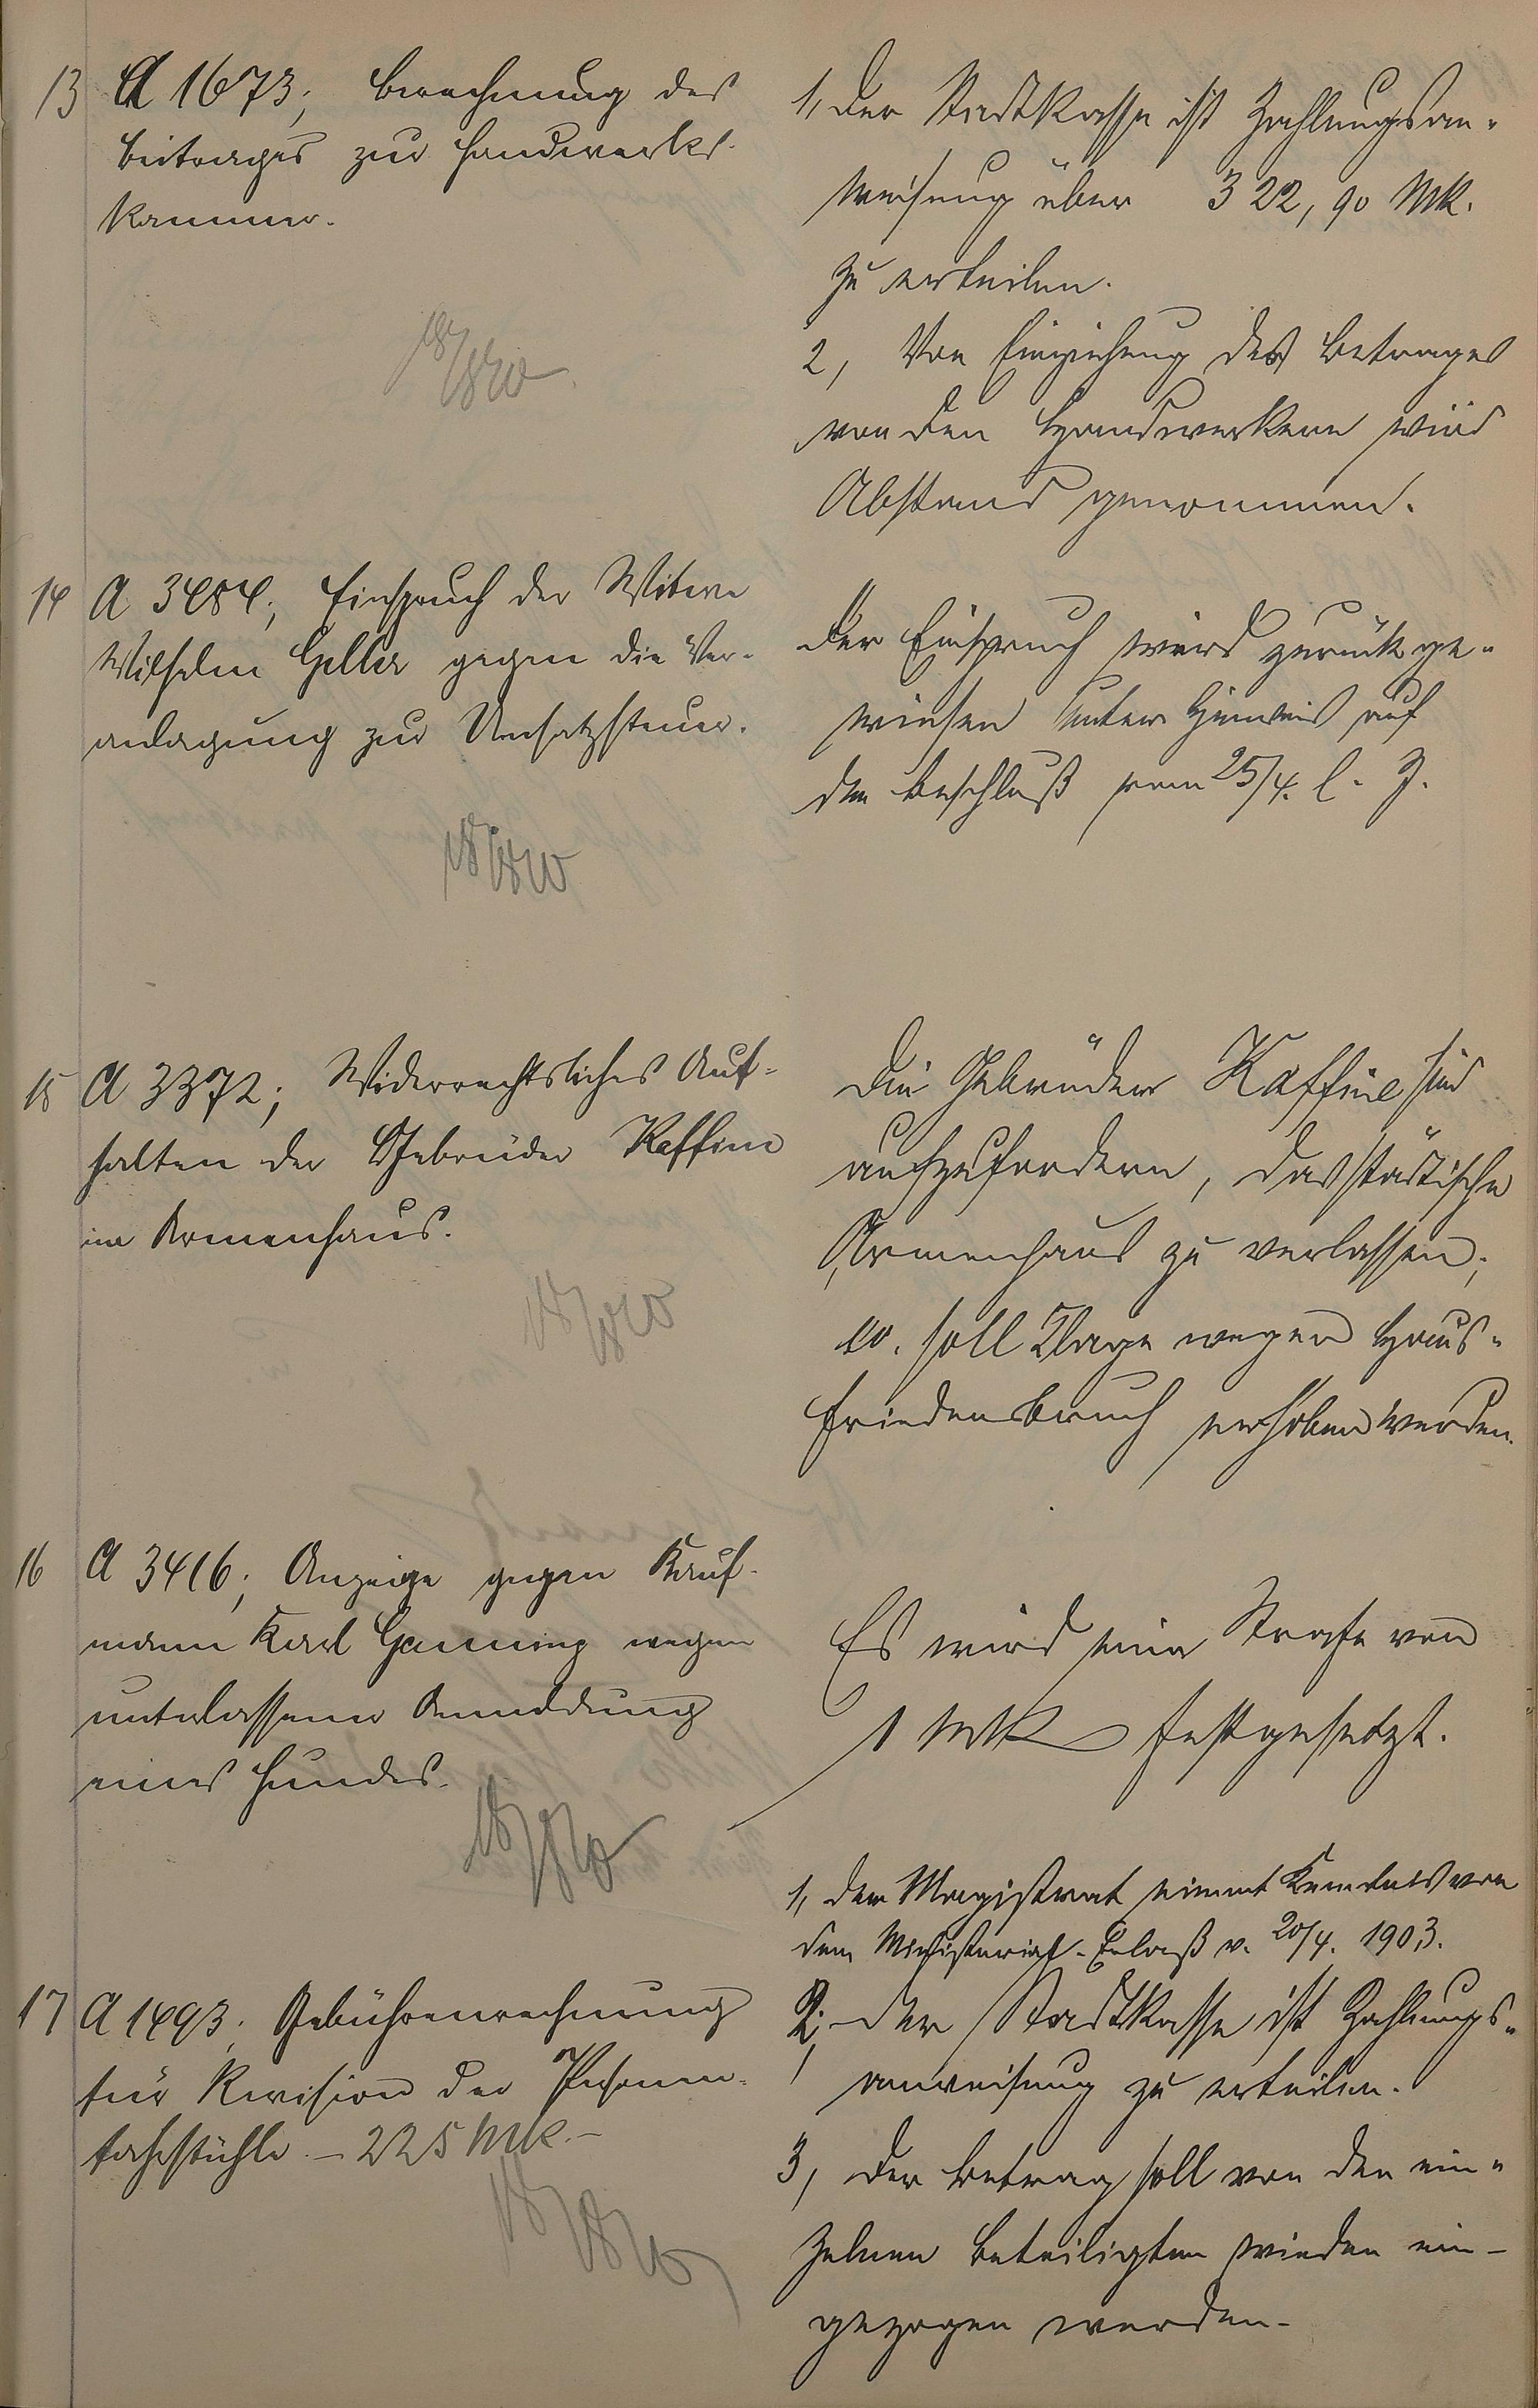 13 A 1673; Berechnung des
Beitrages zur Handwerks-
kammer.
1, Der Stadtkasse ist Zahlungsan-
weisung über 322,90 Mk.
zu erteilen.
2, Von Einziehung des Betrages
von den Handwerkern wird
Abstand genommen.
14 A 3484; Einspruch der Witwe
Wilhelm Geller gegen die Ver-
anlagung zur Umsatzsteuer.
Der Einspruch wird zurückge-
wiesen unter Hinweis auf
den Beschluß vom 25/4. l. J.
15 A 3372; Widerrechtliches Auf-
halten der Gebrüder Kaffine
im Armenhaus.
Die Gebrüder Kaffine sind
aufzufordern, das städtische
Armenhaus zu verlassen;
ev. soll Klage wegen Haus-
friedensbruch erhoben werden.
16 A 3416; Anzeige gegen Kauf-
mann Karl wegen
unterlassener Anmeldung
eines Hundes.
Es wird eine Strafe von
1 Mk festgesetzt.
17 A 1493; Gebührenrechnung
für Revision der Personen-
fahrstühle - 225 Mk.-
1, Der Magistrat nimmt Kenntnis von
dem Ministerial-Erlaß v. 20/4. 1903.
2, Der Stadtkasse ist Zahlungs-
anweisung zu erteilen.
3, Der Betrag soll von den ein-
zelnen Beteiligten wieder ein-
gezogen werden.